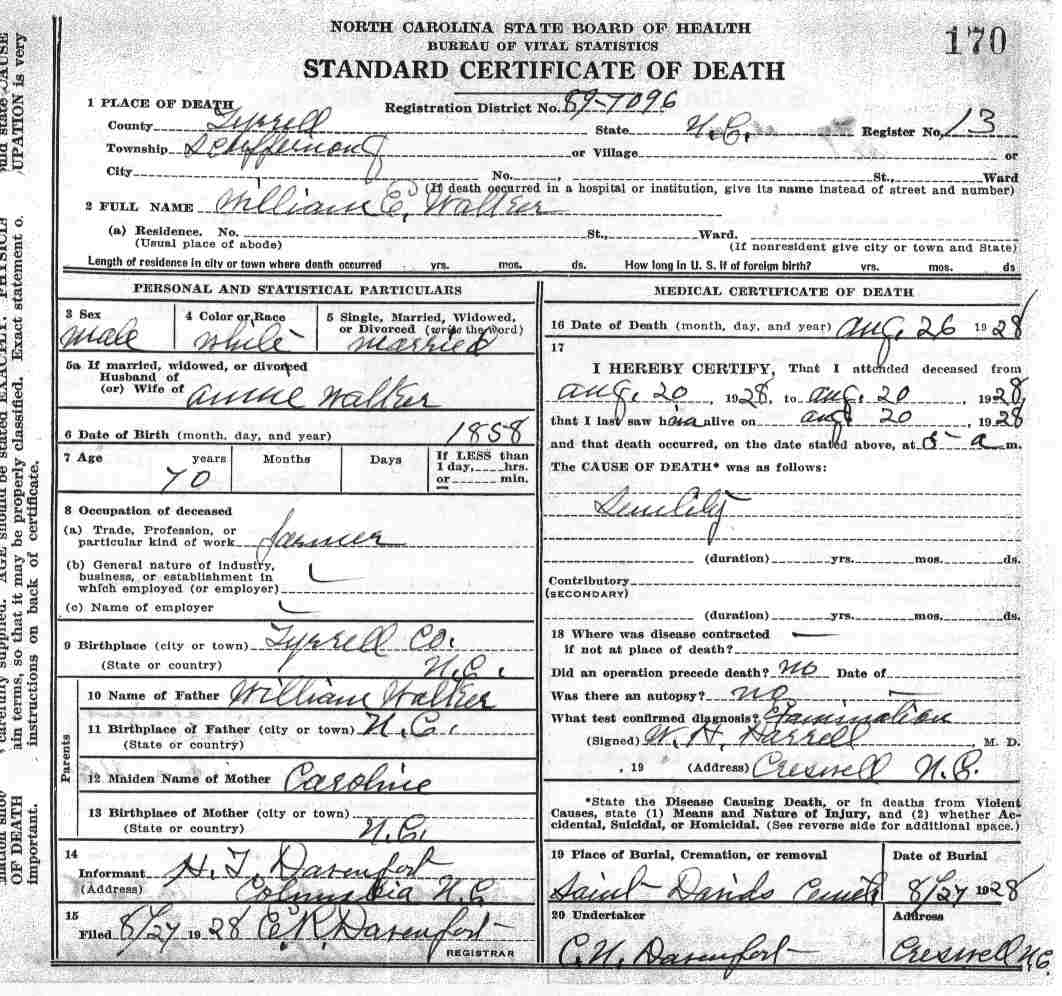 mid state CAUSE
UPATION is very
carefully supplied. AGE should be stated EXACTLY. PHYSICIA
ain terms, so that it may be properly classified. Exact statement o.
instructions on back of certificate.
mation shou
OF DEATH
important.
NORTH CAROLINA STATE BOARD OF HEALTH
BUREAU OF VITAL STATISTICS
170
STANDARD CERTIFICATE OF DEATH
1 PLACE OF DEATH Registration District No. 89-7096
County Tyrrell State N.C. Register No. 13
Township Scuppernong or Village or
City No. , St., Ward
(If death occurred in a hospital or institution, give its name instead of street and number)
2 FULL NAME William E. Walker
(a) Residence. No. St., Ward.
(Usual place of abode) (If nonresident give city or town and State)
Length of residence in city or town where death occurred yrs. mos. ds. How long in U. S. if of foreign birth? yrs. mos. ds
PERSONAL AND STATISTICAL PARTICULARS
3 Sex 4 Color or Race 5 Single, Married, Widowed,
or Divorced (write the word)
male white married
5a If married, widowed, or divorced
Husband of
(or) Wife of annie Walker
6 Date of Birth (month, day, and year) 1858
7 Age years Months Days If LESS than
1 day, hrs.
70 or min.
8 Occupation of deceased
(a) Trade, Profession, or
particular kind of work farmer
(b) General nature of industry,
business, or establishment in
which employed (or employer)
(c) Name of employer
9 Birthplace (city or town) Tyrrell Co.
(State or country) N.C.
Parents
10 Name of Father William Walker
11 Birthplace of Father (city or town) N.C.
(State or country)
12 Maiden Name of Mother Caroline
13 Birthplace of Mother (city or town)
(State or country) N.C.
14
Informant H. T. Davenport
(Address) Columbia N.C
15
Filed 8/27 1928 C. R. Davenport
REGISTRAR
MEDICAL CERTIFICATE OF DEATH
16 Date of Death (month, day, and year) aug. 26 1928
17
I HEREBY CERTIFY, That I attended deceased from
aug. 20, 1928, to aug. 20, 1928,
that I last saw him alive on aug 20, 1928
and that death occurred, on the date stated above, at 5 a m.
The CAUSE OF DEATH* was as follows:
Senility
(duration) yrs. mos. ds.
Contributory
(SECONDARY)
(duration) yrs. mos. ds.
18 Where was disease contracted
if not at place of death?
Did an operation precede death? no Date of
Was there an autopsy? no
What test confirmed diagnosis? Examination
(Signed) W. H. Harrell M. D.
, 19 (Address) Creswell N.C.
*State the Disease Causing Death, or in deaths from Violent
Causes, state (1) Means and Nature of Injury, and (2) whether Ac-
cidental, Suicidal, or Homicidal. (See reverse side for additional space.)
19 Place of Burial, Cremation, or removal Date of Burial
Saint Davids Cemety 8/27 1928
20 Undertaker Address
C. N. Davenport Creswell N.C.